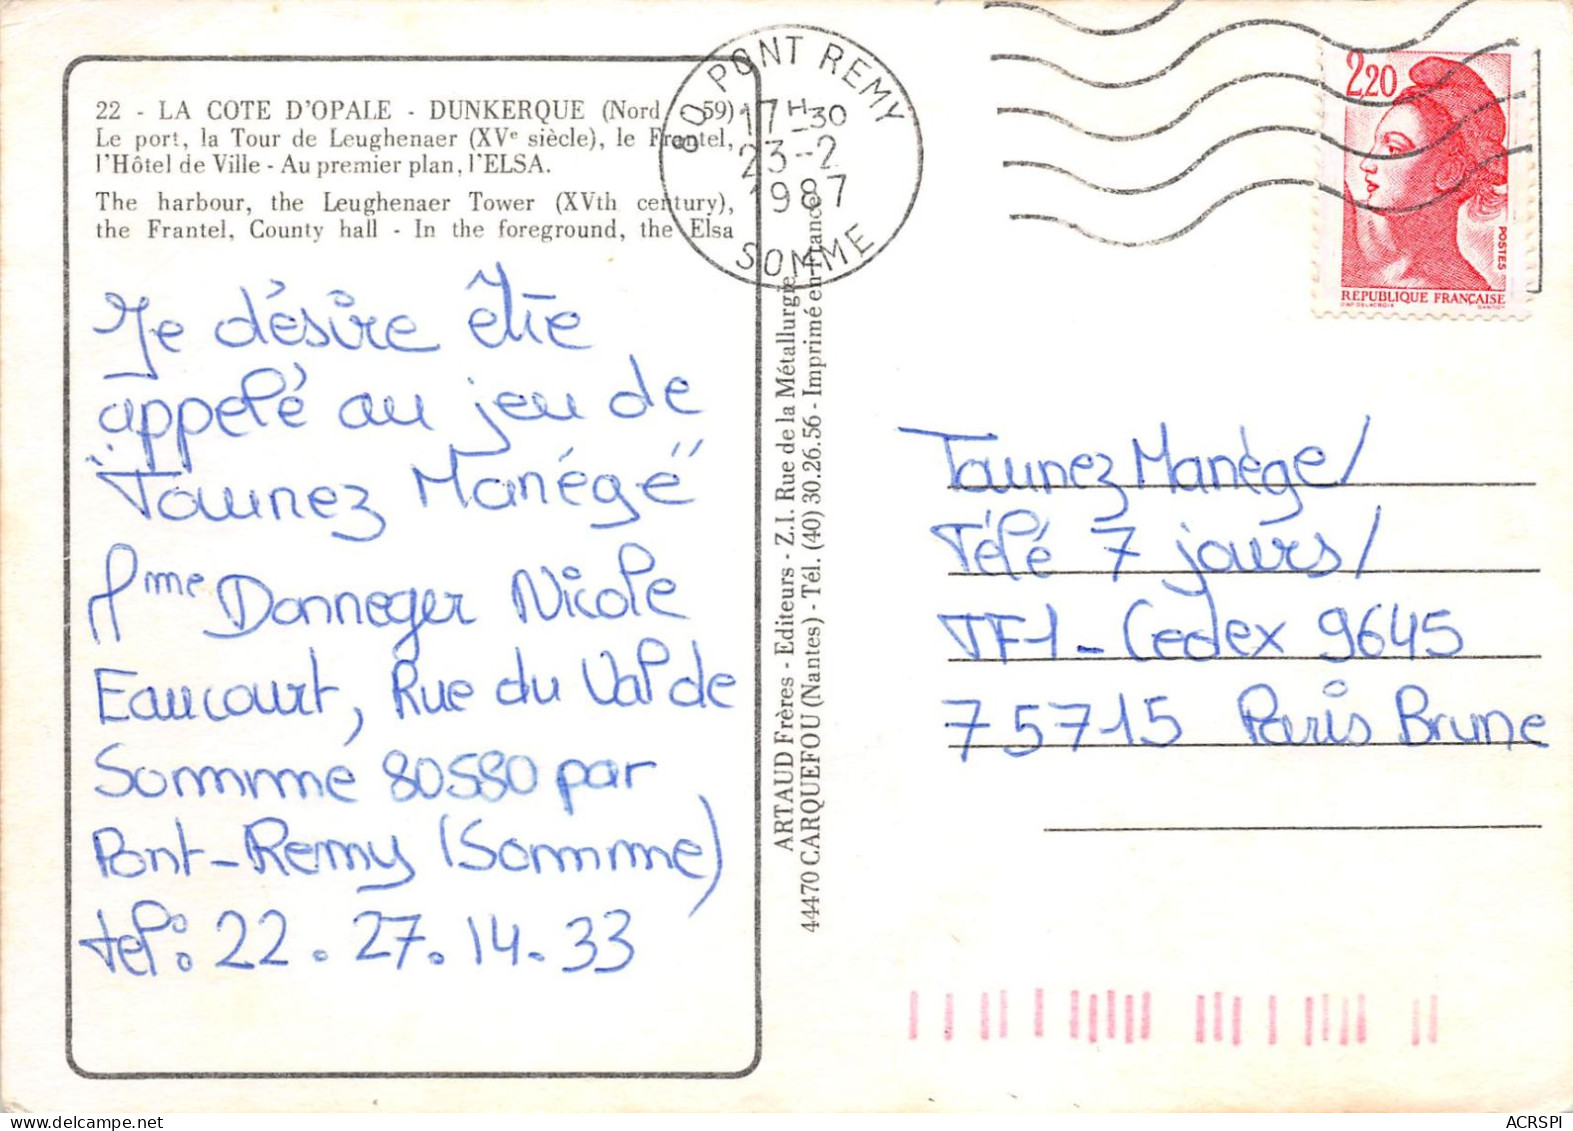 22 - LA COTE D'OPALE - DUNKERQUE (Nord - 59)
Le port, la Tour de Leughenaer (XVe siècle), le Frantel,
l'Hôtel de Ville - Au premier plan, l'ELSA.
The harbour, the Leughenaer Tower (XVth century),
the Frantel, County hall - In the foreground, the Elsa
Je désire être
appelé au jeu de
"Tournez Manége"
Mme Donneger Nicole
Eaucourt, Rue du Val de
Somme 80580 par
Pont-Remy (Somme)
tel: 22.27.14.33
ARTAUD Frères - Editeurs - Z.I. Rue de la Métallurgie
44470 CARQUEFOU (Nantes) - Tél. (40) 30.26.56 - Imprimé en France
80 PONT REMY
17H30
23-2
1987
SOMME
2,20
POSTES
REPUBLIQUE FRANÇAISE
D'AP. DELACROIX GANDON
Tournez Manège/
Télé 7 jours/
TF1 - Cedex 9645
75715 Paris Brune
ACRSPI